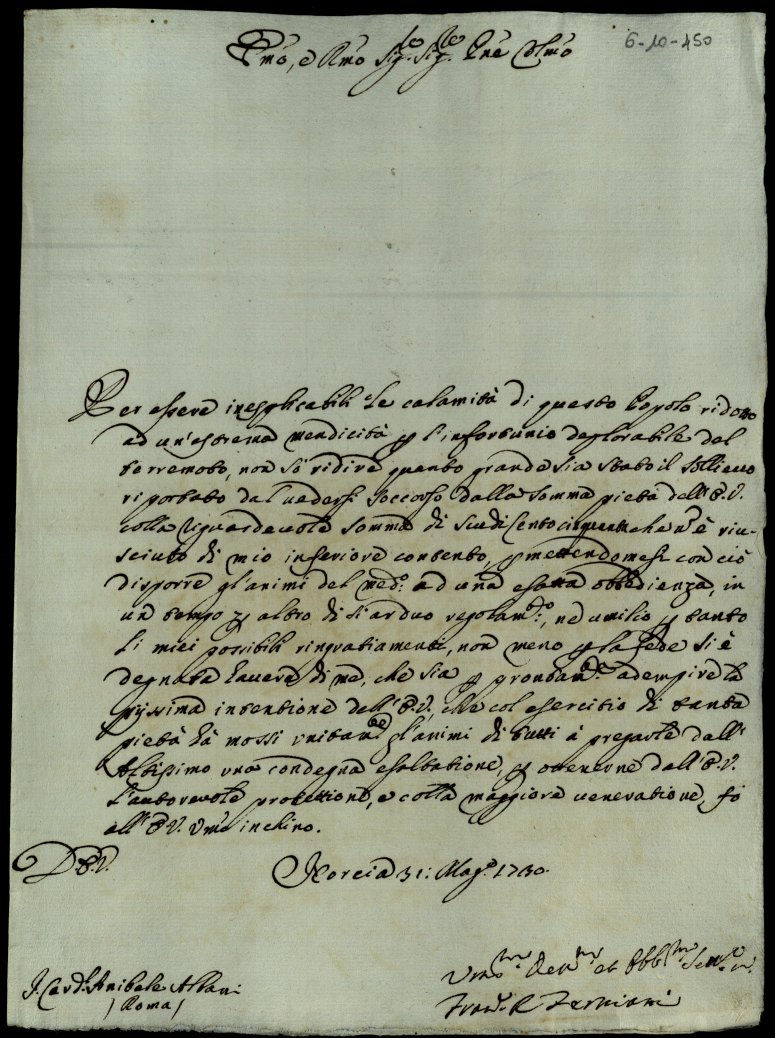 6-10-450
Emo, e Rmo Sig.re Sig.re Pne Colmo
Per essere inesplicabili le calamità di questo Popolo ridotto
ad un'estrema mendicità p l'infortunio deplorabile del
terremoto, non sò ridire quanto grande sia stato il sollievo
riportato dal vedersi soccorso dalla somma pietà dell'E.V.
colla riguardevole somma di scudi centocinquanta che n'è riu-
sciuto di mio inferiore contento, pmettendomesi con ciò
disporre gl'animi del med.o ad una esatta obbedienza, in
un tempo p altro di sì arduo regolam.to, ne umilio p tanto
li miei possibili ringratiamenti, non meno p la fede si è
degnata havere di me, che sia p prontam.te adempire la
pijssima intentione dell'E.V., che col esercitio di tanta
pietà hà mossi unitam.te gl'animi di tutti à pregarle dall'
Altissimo una condegna esaltatione, p ottenerne dall'E.V.
l'autorevole protettione, e colla maggiore veneratione, fo
all'E.V. Umo inchino.
D.E.V.
Norcia 31: Mag.o 1730.
Umo Devmo et Obbmo Serv.re
S. Card.l Anibale Albani
/ Roma /